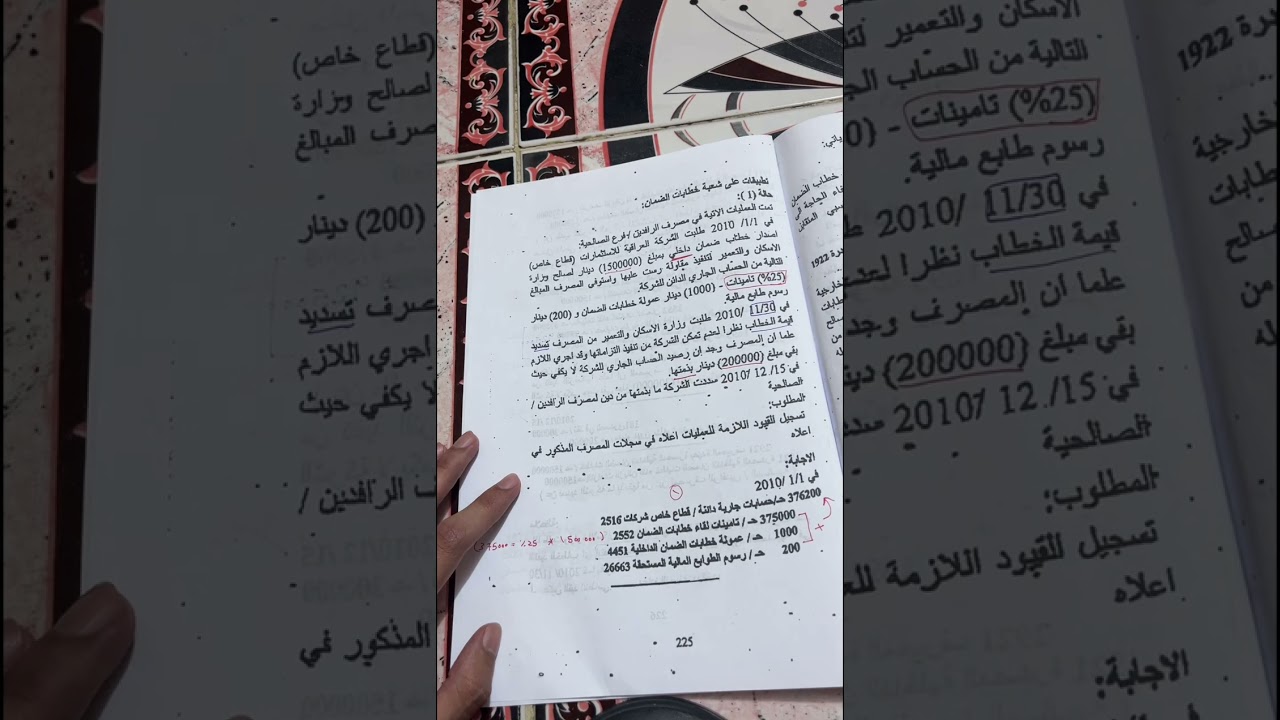 تطبيقات على شعبة خطابات الضمان:
حالة (1):
تمت العمليات الاتية في مصرف الرافدين / فرع الصالحية:
في 1/1/ 2010 طلبت الشركة العراقية للاستثمارات (قطاع خاص)
اصدار خطاب ضمان داخلي بمبلغ (1500000) دينار لصالح وزارة
الاسكان والتعمير لتنفيذ مقاولة رست عليها واستوفى المصرف المبالغ
التالية من الحساب الجاري الدائن للشركة.
(25%) تامينات - (1000) دينار عمولة خطابات الضمان و (200) دينار
رسوم طابع مالية.
في 11/30/ 2010 طلبت وزارة الاسكان والتعمير من المصرف تسديد
قيمة الخطاب نظرا لعدم تمكن الشركة من تنفيذ التزاماتها وقد اجري اللازم
علما ان المصرف وجد ان رصيد الحساب الجاري للشركة لا يكفي حيث
بقي مبلغ (200000) دينار بذمتها.
في 15/ 12 /2010 سددت الشركة ما بذمتها من دين لمصرف الرافدين /
الصالحية
المطلوب:
تسجيل القيود اللازمة للعمليات اعلاه في سجلات المصرف المذكور في
اعلاه
الاجابة:
في 1/1/ 2010
376200 حـ/حسابات جارية دائنة / قطاع خاص شركات 2516
375000 حـ / تامينات لقاء خطابات الضمان 2552
(375000 = %25 * 1.500.000)
1000 حـ / عمولة خطابات الضمان الداخلية 4451
200 حـ / رسوم الطوابع المالية المستحقة 26663
225